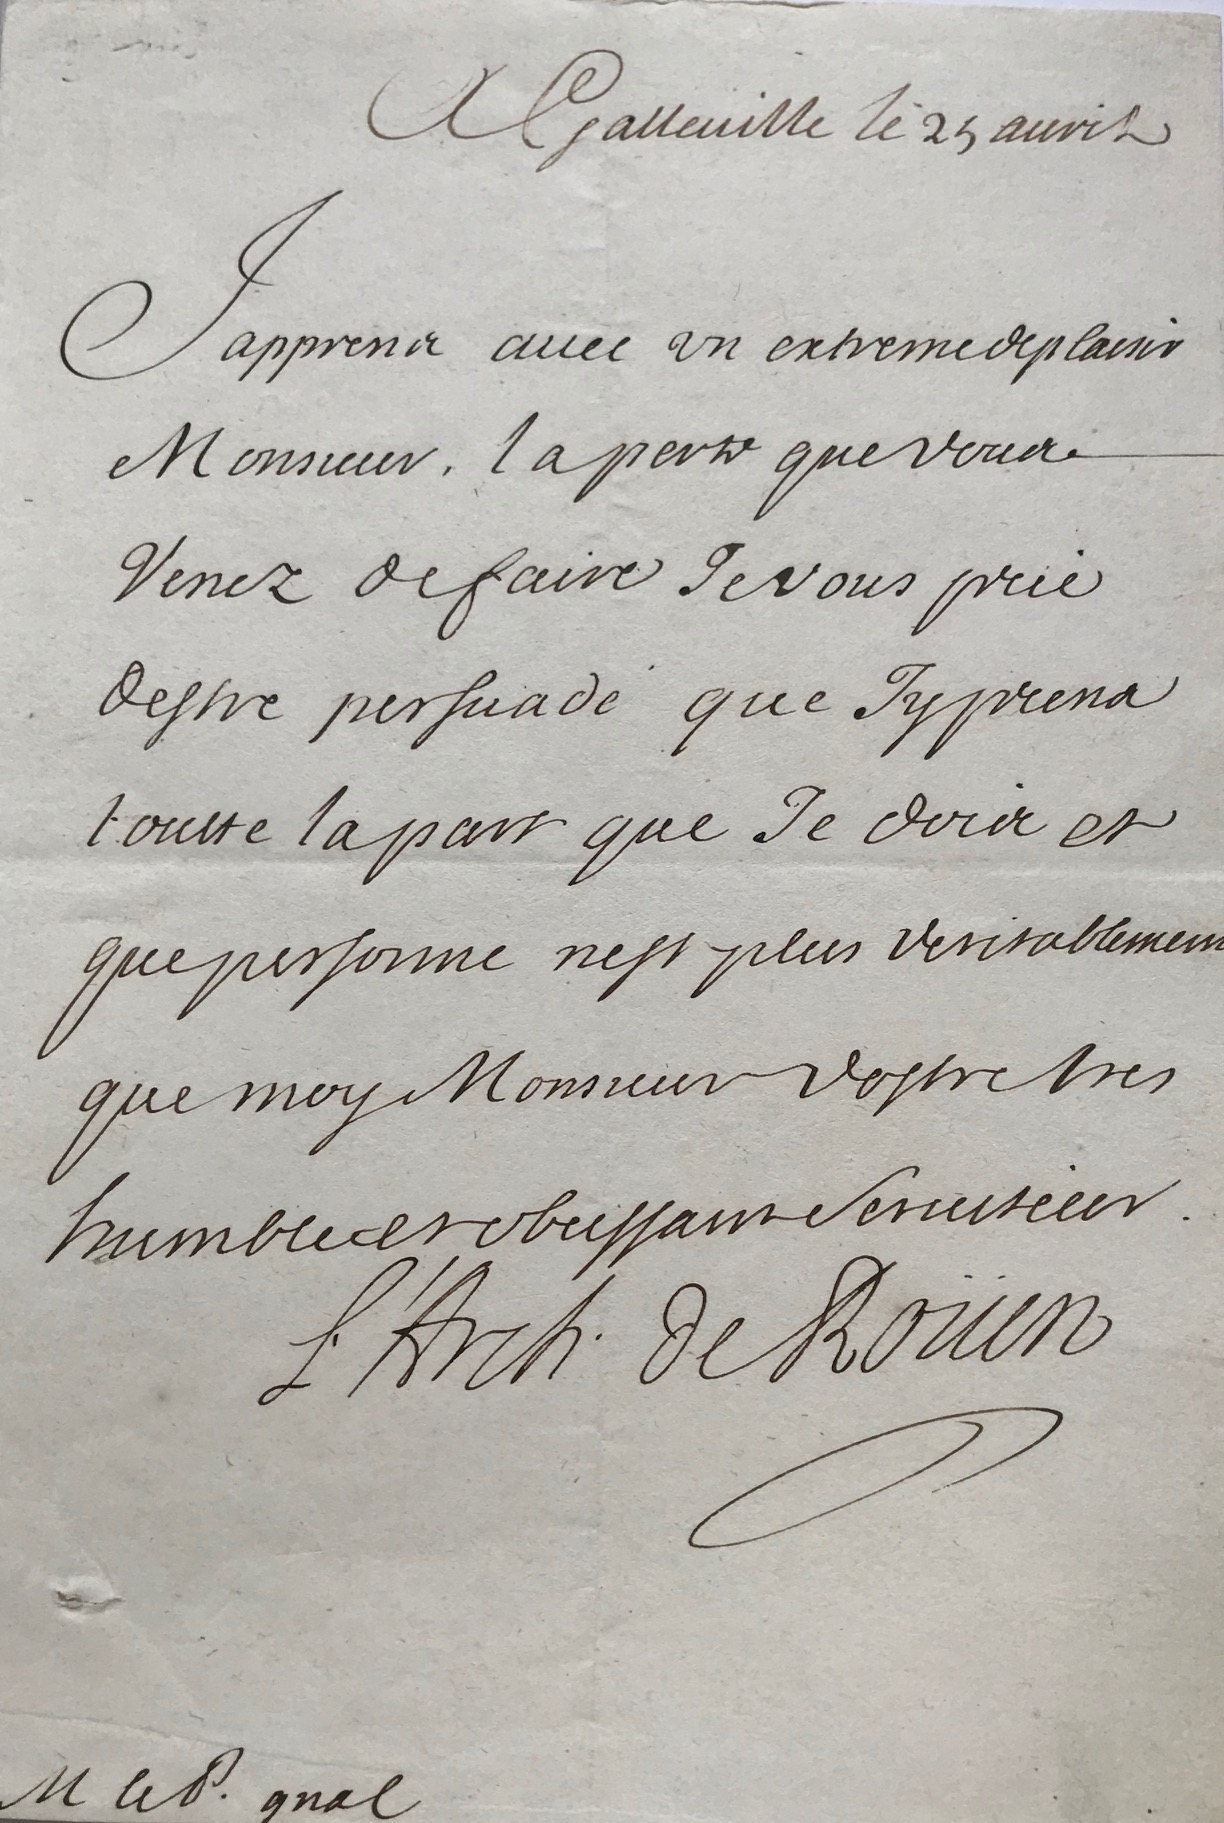 A Galleuille le 25 auril
Japprens auec vn extreme deplaisir
Monsieur, la perte que vous
Venez de faire Je vous prie
destre persuadé que Jy prens
toutte la part que Je dois et
que personne nest plus veritablement
que moy Monsieur vostre tres
humble et obeissant seruiteur.
L'Arch. de Roüen
M le P. gnal